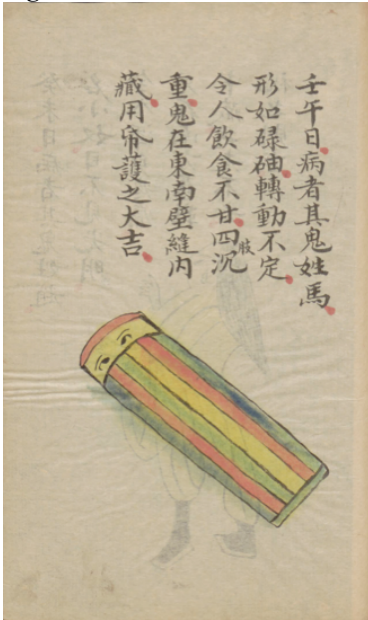 壬午日病者其鬼姓馬
形如碌轉動不定
令人飲食不甘四肢沉
重鬼在東南壁縫内
藏用帋護之大吉